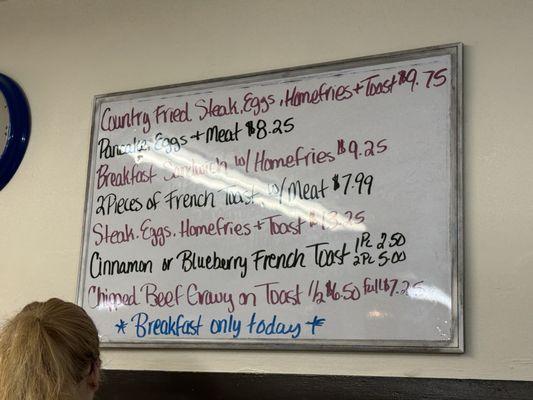 Country Fried Steak, Eggs, Homefries + Toast $9.75
Pancake, Eggs + Meat $8.25
Breakfast Sandwich w/ Homefries $9.25
2 Pieces of French Toast, w/ Meat $7.99
Steak, Eggs, Homefries + Toast $13.25
Cinnamon or Blueberry French Toast 1 Pc 2.50
2 Pc 5.00
Chipped Beef Gravy on Toast 1/2 $6.50 Full $7.25
* Breakfast only today *